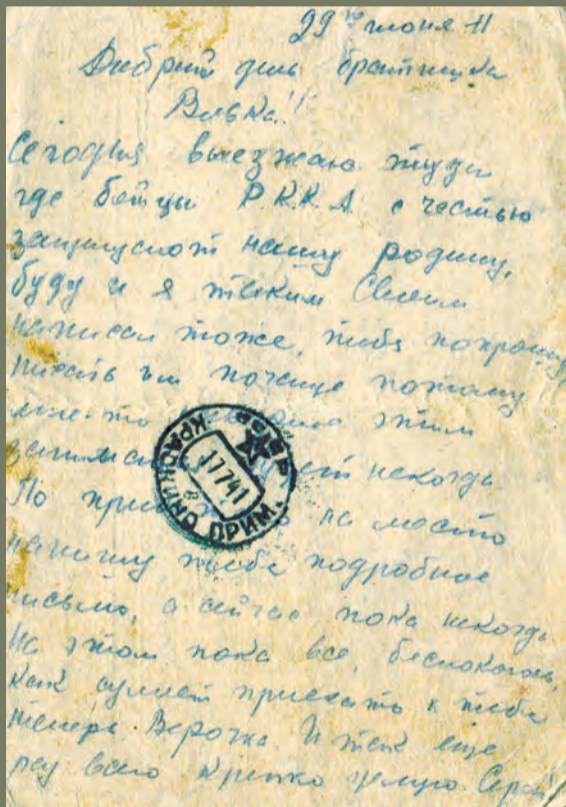 29го июня 41
Добрый день братишка
Вовка!!
Сегодня выезжаю туда
где бойцы Р.К.К.А с честью
защищают нашу родину,
буду и я таким Своим
написал тоже, тебя попрошу
писать им почаще потому
мне-то этим
некогда
По на место
напишу тебе подробное
письмо, а сейчас пока некогда
На этом пока все, беспокоюсь,
как сумеет приехать к тебе
теперь Верочка И так еще
раз всего крепко целую Сергей
КРАСКИНО ПРИМ.
17741